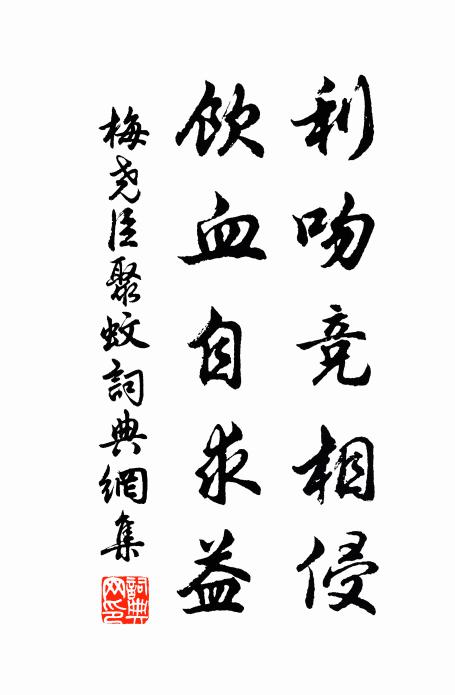 利吻竞相侵
飲血自求益
梅尧臣聚蚊詞典網集
詞典网印